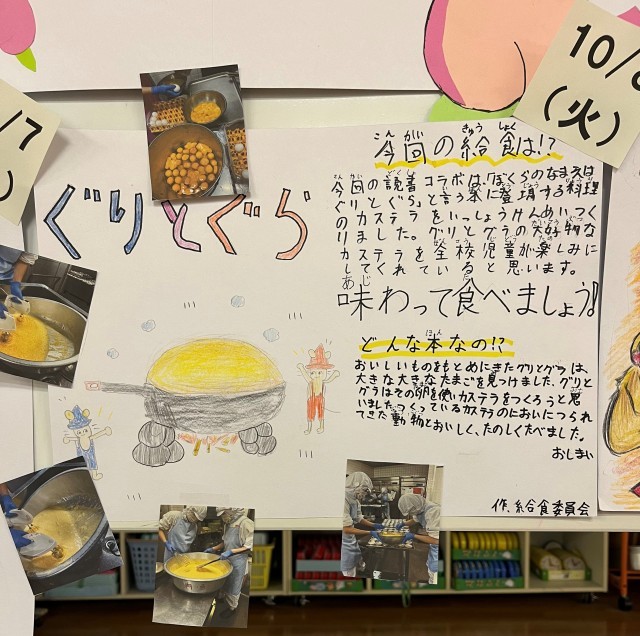 10/
(火)
/7
ぐりとぐら
今回の給食は!?
今回の読書コラボは「ぼくらのなまえは
ぐりとぐら」と言う本に登場する料理
のカステラをいっしょうけんめいつく
りました。グリとグラの大好物な
カステラを全校児童が楽しみに
してくれていると思います。
味わって食べましょう!
どんな本なの!?
おいしいものをもとめにきたグリとグラは、
大きな大きなたまごを見つけました。グリと
グラはその卵を使いカステラをつくろうと思
いました。つくっているカステラのにおいにつられ
てきた動物とおいしく、たのしくたべました。
おしまい
作.給食委員会